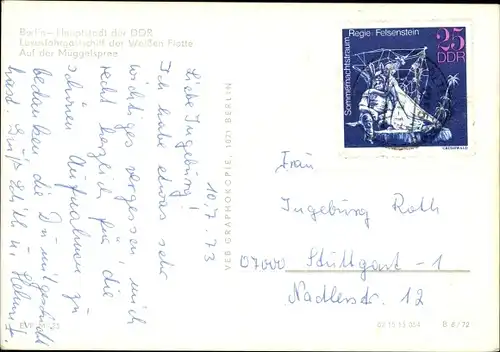 Berlin – Hauptstadt der DDR
Luxusfahrgastschiff der Weißen Flotte
Auf der Müggelspree
10.7.73
Liebe Ingeburg!
Ich habe etwas sehr
wichtiges vergessen, mich
recht herzlich für die
schönen Aufnahmen zu
bedanken die Du mitgeschickt
hast. Gruß u. Helmut
VEB GRAPHOKOPIE, 1071 BERLIN
Sommernachtstraum
Regie: Felsenstein
25
DDR
GRÜNEWALD
Frau
Ingeburg Roth
07000 Stuttgart-1
Nadlerstr. 12
02 15 13 354
B 6/72